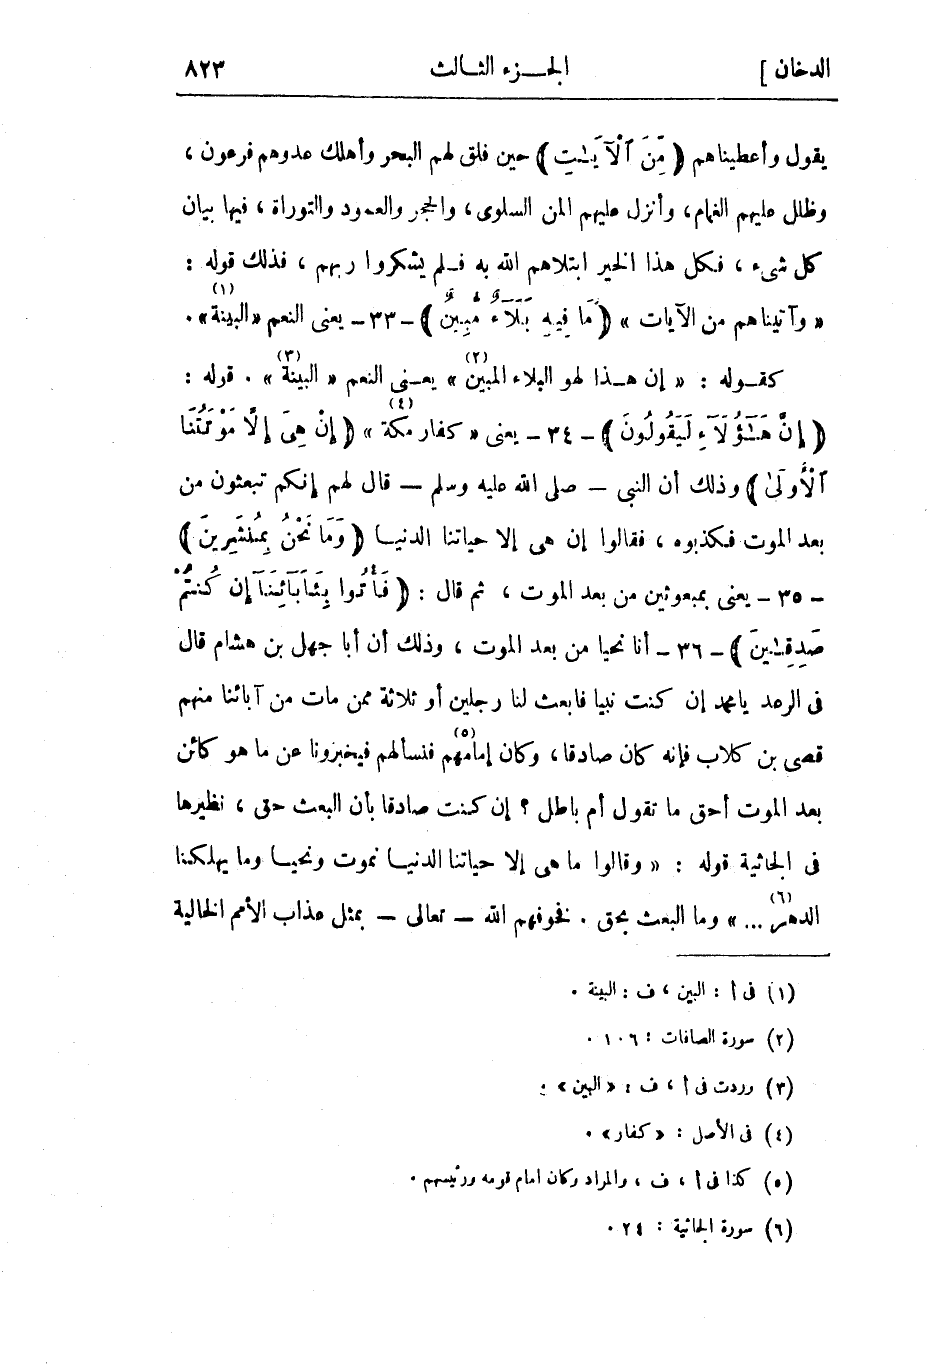 الدخان ] الجـزء الثـالث ٨٢٣
يقول وأعطيناهم ﴿ مِّنَ ٱلْآيَـٰتِ ﴾ حين فلق لهم البحر وأهلك عدوهم فرعون ،
وظلل عليهم الغمام، وأنزل عليهم المن السلوى، والحجر والعمود والتوراة ، فيها بيان
كل شىء ، فكل هذا الخير ابتلاهم الله به فـلم يشكروا ربهم ، فذلك قوله :
« وآتيناهم من الآيات » ﴿ مَا فِيهِ بَلَـٰٓؤٌا۟ مُّبِينٌ ﴾ ـ ٣٣ ـ يعنى النعم « البينة (١) » .
كقـوله : « إن هـذا لهو البلاء المبين (٢) » يعـنى النعم « البينة (٣) » . قوله :
﴿ إِنَّ هَـٰٓؤُلَآءِ لَيَقُولُونَ ﴾ ـ ٣٤ ـ يعنى « كفار مكة (٤) » ﴿ إِنْ هِىَ إِلَّا مَوْتَتُنَا
ٱلْأُولَىٰ ﴾ وذلك أن النبى — صلى الله عليه وسلم — قال لهم إنكم تبعثون من
بعد الموت فكذبوه ، فقالوا إن هى إلا حياتنا الدنيـا ﴿ وَمَا نَحْنُ بِمُنشَرِينَ ﴾
ـ ٣٥ ـ يعنى بمبعوثين من بعد الموت ، ثم قال : ﴿ فَأْتُوا بِـَٔابَآئِنَآ إِن كُنتُمْ
صَـٰدِقِينَ ﴾ ـ ٣٦ ـ أنا نحيا من بعد الموت ، وذلك أن أبا جهل بن هشام قال
فى الرعد يامحمد إن كنت نبيا فابعث لنا رجلين أو ثلاثة ممن مات من آبائنا منهم
قصى بن كلاب فإنه كان صادقا ، وكان إمامهم (٥) فنسألهم فيخبرونا عن ما هو كائن
بعد الموت أحق ما تقول أم باطل ؟ إن كنت صادقا بأن البعث حق ، نظيرها
فى الجاثية قوله : « وقالوا ما هى إلا حياتنا الدنيـا نموت ونحيـا وما يهلكنا إلا
الدهر (٦) ... » وما البعث بحق . فخوفهم الله — تعالى — بمثل عذاب الأمم الخالية
(١) فى أ : البين ، ف : البينة .
(٢) سورة الصافات : ١٠٦ .
(٣) وردت فى أ ، ف : « البين » .
(٤) فى الأصل : « كفار » .
(٥) كذا فى أ ، ف ، والمراد وكان امام قومه ورئيسهم .
(٦) سورة الجاثية : ٢٤ .